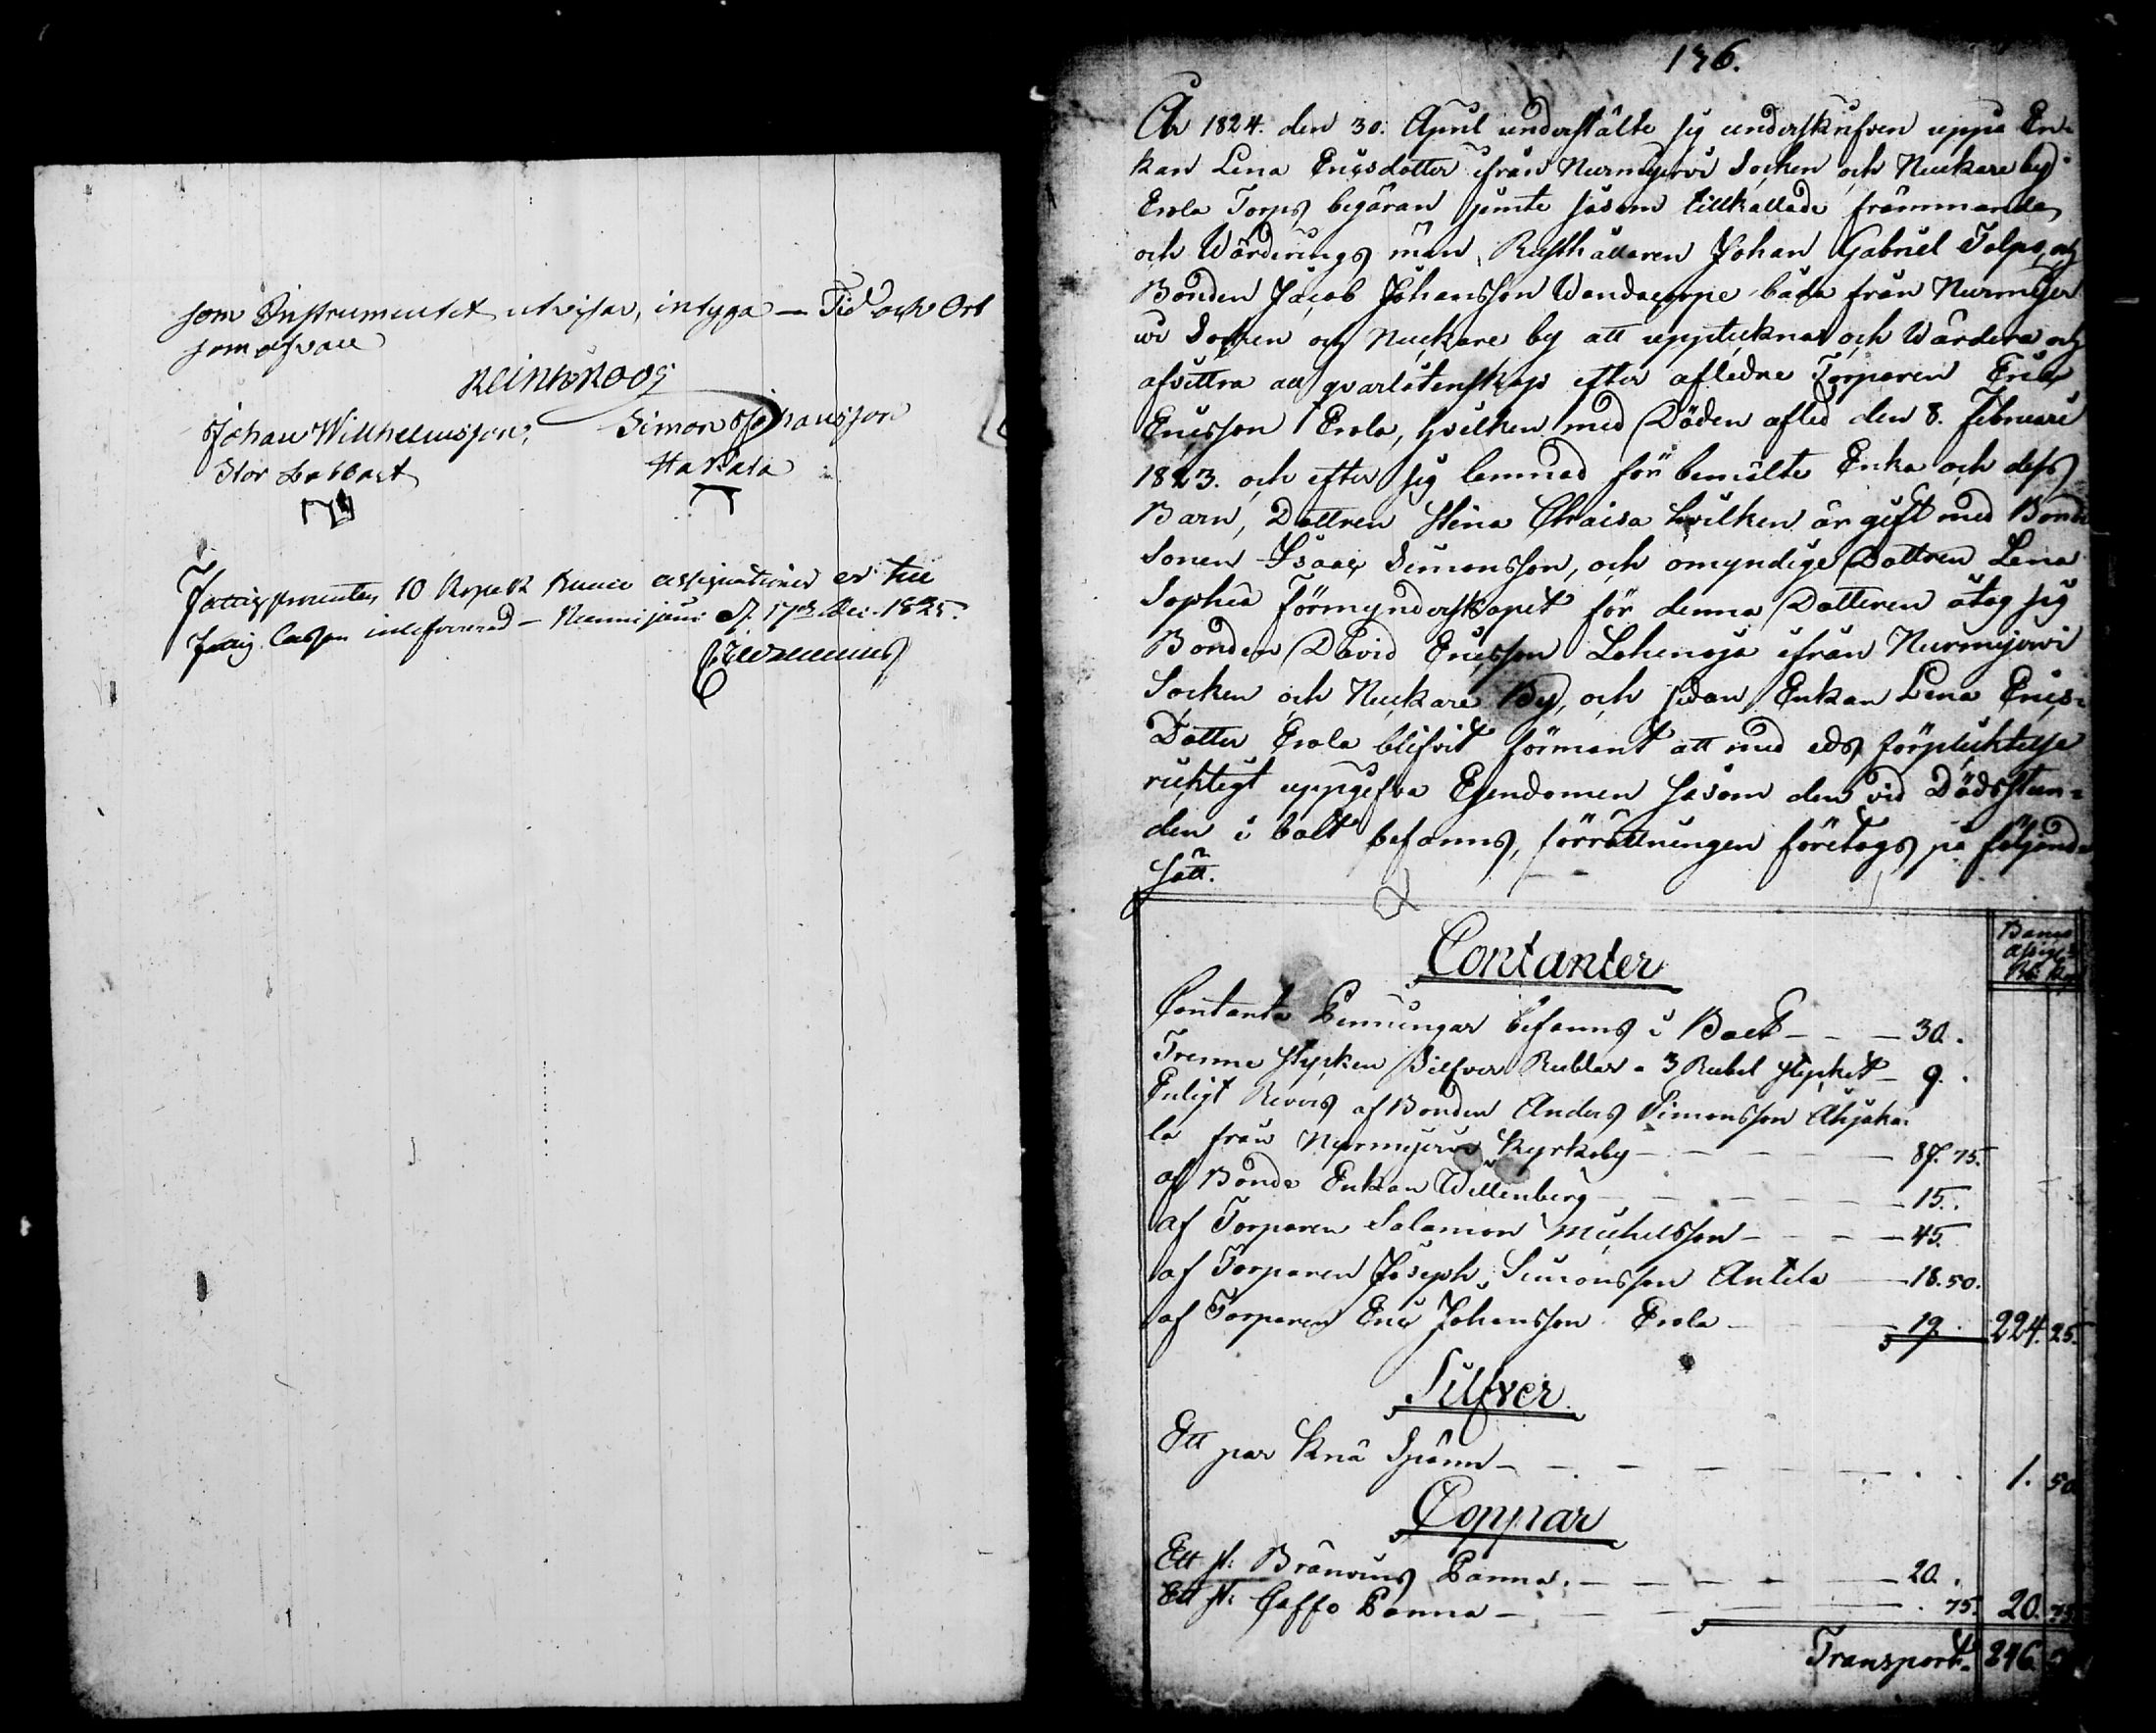 som Instrumentet utvisar, intyga — Tid och Ort
som ofvan
Reinh Roos
Johan Wilhelmsson, Simon Johansson
Stor Hakala
Fattigprocenten 10 Kopek Banco assignationer är till
fattig Cassan inlefvererad — Nurmijärvi d. 17de Dec. 1825.
136.
År 1824. den 30. April instälte sig underskrifven uppå En-
kan Lena Ericsdotter ifrån Nurmijerwi Socken och Nuckare by
Erola Torps begäran jemte såsom tillkallade främmande
och Wärderings män, Rusthållaren Johan Gabriel Tolpo, och
Bonden Jacob Johansson båda från Nurmijer
wi Socken och Nuckare by att uppteckna och Wärdera och
afvittra all qvarlåtenskap efter aflidne Torparen Eric
Ericsson Erola, hvilken med Döden afled den 8. Februari
1823. och efter sig lemnad för bemälte Enka och dess
Barn, Dottren Stina Chraisa hvilken är gift med Bonde
Sonen Isaac Simonsson, och omyndige Dottren Lena
Sophia Förmynderskapet för denna Dotteren åtog sig
Bonden David Ericsson Lohinoja ifrån Nurmijerwi
Socken och Nuckare By, och sedan Enkan Lena Erics-
Dotter Erola blifvit förmant att med eds förpliktelse
ricktigt uppgifva Egendomen såsom den vid Dödsstun-
den i bolt befanns, förrättningen företogs på följande
Sätt.
Banco
assig:
Rb. Kop
Contanter
Contanta Penningar befanns i Boet — — — 30. .
Trenne stycken Silfver Rublar a 3 Rubel stycket — 9. .
Enligt Revers af Bonden Anders Simonsson Ahjaka-
la från Nurmijerwi Kyrkoby — — — — 87. 75.
af Bonde Enkan Willenberg — — — — 15. .
af Torparen Salamon Michelsson — — — — 45.
af Torparen Joseph Simonsson Antila — 18. 50.
af Torparen Eric Johansson Erola — — — 19. . 224. 25.
Silfver
Ett par Knä Spänn — — — — — — . . 1. 50
Coppar
Ett st: Bränvins Panna. — — — — — 20. .
Ett st: Caffe Panna — — — — — . 75. 20. 75
Transport. 246. 50